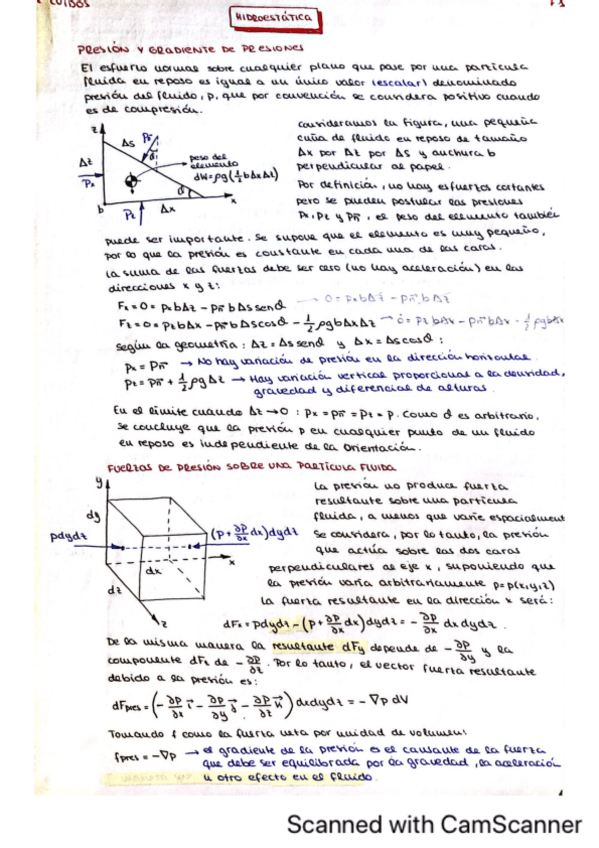 HIDROESTÁTICA
PRESIÓN Y GRADIENTE DE PRESIONES
El esfuerzo normal sobre cualquier plano que pase por una partícula
fluida en reposo es igual a un único valor (escalar) denominado
presión del fluido, p, que por convención se considera positivo cuando
es de compresión.
consideramos la figura, una pequeña
cuña de fluido en reposo de tamaño
Δx por Δz por Δs y anchura b
perpendicular al papel.
Por definición, no hay esfuerzos cortantes
pero se pueden postular las presiones
Px, Pz y Pn, el peso del elemento también
z
Δs
Pn
Δz
Px
peso del
elemento
dW = ρg(½bΔxΔz)
θ
x
b
Pz
Δx
puede ser importante. Se supone que el elemento es muy pequeño,
por lo que la presión es constante en cada una de las caras.
La suma de las fuerzas debe ser cero (no hay aceleración) en las
direcciones x y z:
Fx = 0 = pxbΔz - pnbΔs senθ → 0 = pxbΔz - pnbΔz
Fz = 0 = pzbΔx - pnbΔs cosθ - ½ρgbΔxΔz → 0 = pzbΔx - pnbΔx - ½ρgbΔxΔz
Según la geometría: Δz = Δs senθ y Δx = Δs cosθ:
px = pn → No hay variación de presión en la dirección horizontal.
pz = pn + ½ρgΔz → Hay variación vertical proporcional a la densidad,
gravedad y diferencial de alturas.
En el límite cuando Δz → 0: px = pn = pz = p. Como θ es arbitrario,
se concluye que la presión p en cualquier punto de un fluido
en reposo es independiente de la orientación.
FUERZAS DE PRESIÓN SOBRE UNA PARTÍCULA FLUIDA
La presión no produce fuerza
resultante sobre una partícula
fluida, a menos que varíe espacialmente
Se considera, por lo tanto, la presión
que actúa sobre las dos caras
perpendiculares al eje x, suponiendo que
la presión varía arbitrariamente p = p(x,y,z)
La fuerza resultante en la dirección x será:
y
dy
pdydz
(p + ∂p/∂x dx)dydz
dx
x
dz
z
dFx = pdydz - (p + ∂p/∂x dx)dydz = - ∂p/∂x dxdydz.
De la misma manera la resultante dFy depende de - ∂p/∂y y la
componente dFz de - ∂p/∂z. Por lo tanto, el vector fuerza resultante
debido a la presión es:
dFpres = (- ∂p/∂x i - ∂p/∂y j - ∂p/∂z k) dxdydz = - ∇p dV
Tomando f como la fuerza neta por unidad de volumen:
fpres = -∇p → el gradiente de la presión es el causante de la fuerza
que debe ser equilibrada por la gravedad, la aceleración
u otro efecto en el fluido.
Scanned with CamScanner